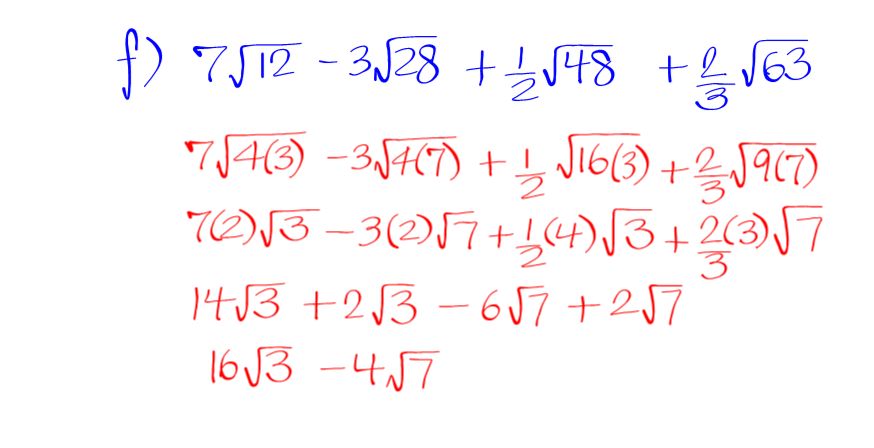 f) 7√12 - 3√28 + 1/2 √48 + 2/3 √63
7√4(3) - 3√4(7) + 1/2 √16(3) + 2/3 √9(7)
7(2)√3 - 3(2)√7 + 1/2 (4)√3 + 2/3 (3)√7
14√3 + 2√3 - 6√7 + 2√7
16√3 - 4√7